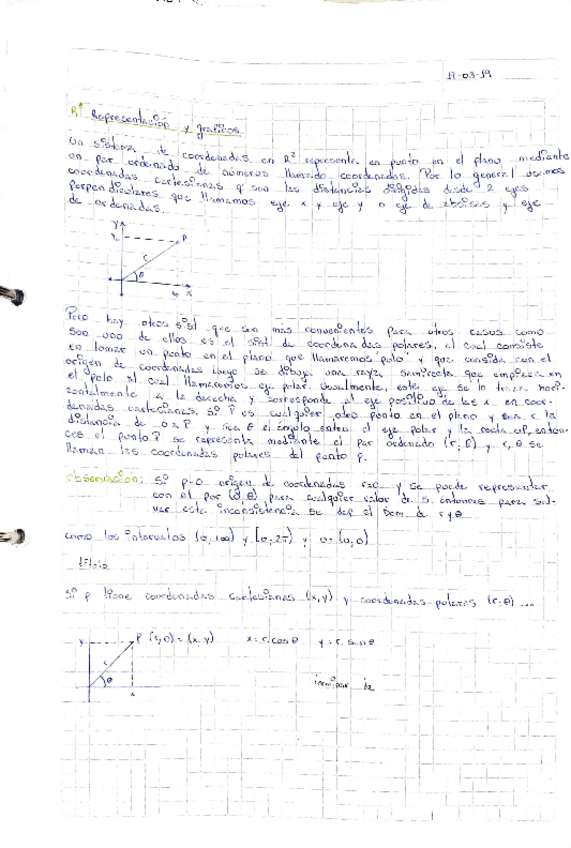 19-03-19
R² Representación y graficos
Un sistema de coordenadas en R² representa en punto en el plano mediante
un par ordenado de números llamado coordenadas. Por lo general usamos
coordenadas cartesianas q son las distancias dirigidas desde 2 ejes
perpendiculares que llamamos eje x y eje y o eje de abscisas y eje
de ordenadas.
y
P
r
θ
x
Pero hay otros sist que son más convenientes para otros casos como
son uno de ellos es el sist de coordenadas polares, el cual consiste
en tomar un punto en el plano que llamaremos polo y que coincida con el
origen de coordenadas luego se dibuja una raya, semirrecta que empieza en
el polo al cual llamaremos eje polar. Usualmente, este eje se lo traza hori-
zontalmente a la derecha y corresponde al eje positivo de las x en coor-
denadas cartesianas. Si P es cualquier otro punto en el plano y sea r la
distancia de o a P y sea θ el ángulo entre el eje polar y la recta oP, enton-
ces el punto P se representa mediante el par ordenado (r, θ) y r, θ se
llaman las coordenadas polares del punto P.
observación: Si p=O origen de coordenadas r=0 y se puede representar
con el par (0, θ) para cualquier valor de entonces para sal-
var esta inconsistencia se dom de r y θ
como los intervalos (0, +∞) y [0, 2π) y 0=(0,0)
Si p tiene coordenadas cartesianas (x,y) y coordenadas polares (r, θ) ...
y
P (r,θ) = (x,y) x = r.cosθ y = r.senθ
r
θ
x